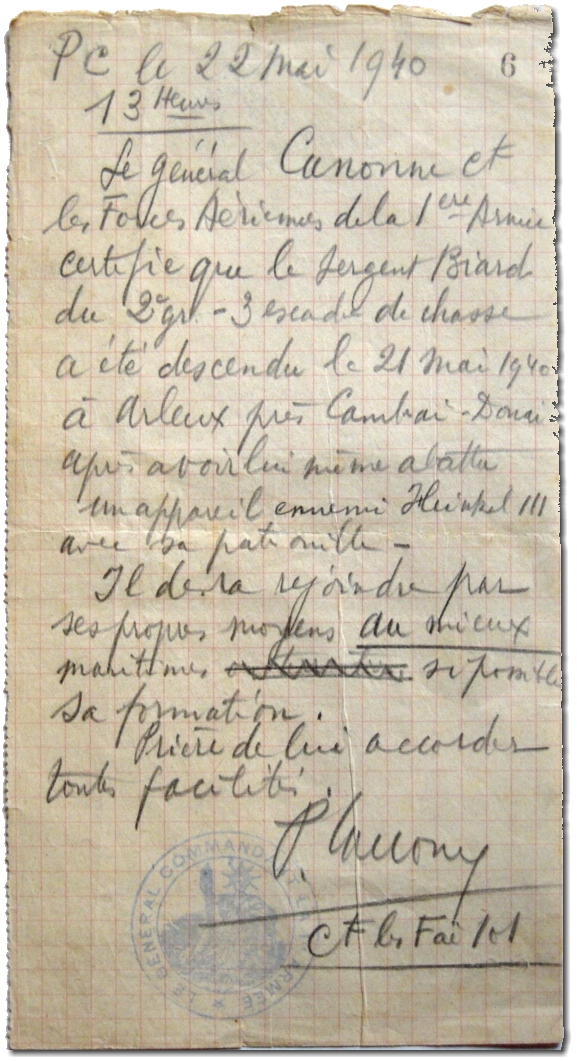 PC le 22 Mai 1940
6
13 Heures
Le général Canonne Ct
les Forces Aériennes de la 1ere Armée
certifie que le Sergent Biard
du 2e gr. - 3 escadre de chasse
a été descendu le 21 Mai 1940
à Arleux près Cambrai - Douai
après avoir lui même abattu
un appareil ennemi Heinkel 111
avec sa patrouille -
Il devra rejoindre par
ses propres moyens au mieux
maritimes si possible
sa formation.
Prière de lui accorder
toutes facilités.
P Canonne
Ct les Faé 101
LE GENERAL COMMANDANT LA ARMEE